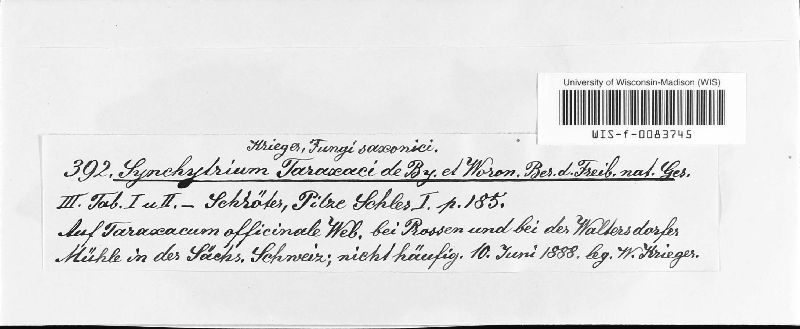 University of Wisconsin-Madison (WIS)
WIS-f-0083745
Krieger, Fungi saxonici.
392. Synchytrium Taraxaci de By. et Woron. Ber. d. Freib. nat. Ges.
III. Tab. I u. II. – Schröter, Pilze Schles. I. p. 185.
Auf Taraxacum officinale Web. bei Prossen und bei der Waltersdorfer
Mühle in der Sächs. Schweiz; nicht häufig. 10. Juni 1888. leg. W. Krieger.